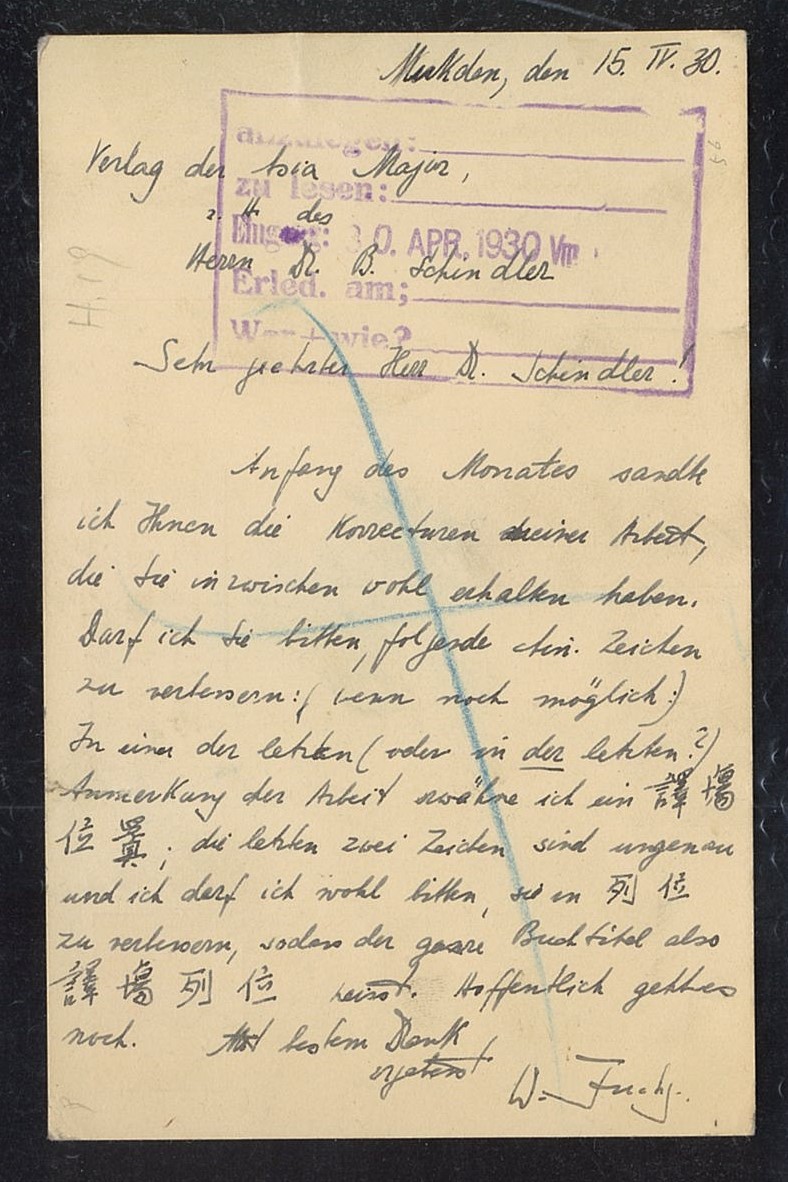 Mukden, den 15. IV. 30.
anzulegen:
Verlag der Asia Major,
zu lesen:
z. H. des
Eingang: 30. APR. 1930 Vm
Herrn Dr. B. Schindler
Erled. am;
Wer + wie?
Sehr geehrter Herr Dr. Schindler!
Anfang des Monates sandte
ich Ihnen die Korrecturen meiner Arbeit,
die Sie inzwischen wohl erhalten haben.
Darf ich Sie bitten, folgende chin. Zeichen
zu verbessern: (wenn noch möglich:)
In einer der letzten (oder in der letzten?)
Anmerkung der Arbeit erwähne ich ein 譯場
位置; die letzten zwei Zeichen sind ungenau
und ich darf ich wohl bitten, sie in 列位
zu verbessern, sodass der ganze Buchtitel also
譯場列位 heisst. Hoffentlich geht es
noch. Mit bestem Dank
ergebenst
W. Fuchs.